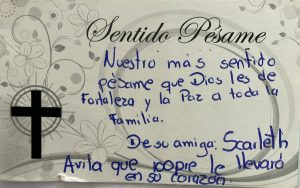 Sentido Pésame
Nuestro más sentido
pésame que Dios les de
Fortaleza y la Paz a toda la
Familia.
De su amiga: Scarleth
Avila que siempre le llevará
en su corazón.